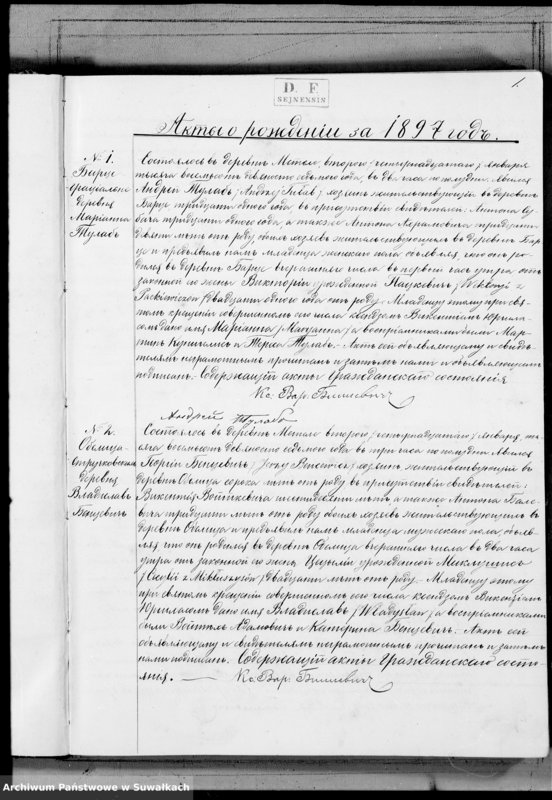 D. F.
SEJNENSIN
1.
Акты о рожденіи за 1897 годъ.
№ 1.
деревня
Маріанна
Тулабъ
Состоялось въ деревнѣ Метели, второго /четырнадцатаго/ Января
тысяча восемьсотъ девяносто седьмого года, въ два часа по полудни. Явился
Андрей Тулабъ, хозяинъ жительствующій въ деревнѣ
тридцати одного года, въ присутствіи свидѣтелей: Антона
тридцати одного года, а также Антона тридцати
лѣтъ отъ роду обоихъ хозяевъ жительствующихъ въ деревнѣ
и предъявилъ намъ младенца женскаго пола объявляя, что онъ ро-
дился въ деревнѣ вчерашняго числа въ первой часъ утра отъ
законной его жены Викторіи урожденной Пацкевичъ /Wiktoryi z
двадцати одного года отъ роду. Младенцу этому при свя-
томъ крещеніи совершенномъ сего числа ксендзомъ Викентіемъ
дано имя Маріанна /Maryanna/ а воспріемниками были Мар-
тинъ и Тереса Тулабъ. Актъ сей объявляющему и свидѣ-
телямъ неграмотнымъ прочитанъ и затѣмъ нами и объявляющимъ
подписанъ. Содержащій акты Гражданскаго состоянія
Кс. Вар.
Андрей Тулабъ
№ 2.
Обелица-
деревня
Владиславъ
Бенцевичъ
Состоялось въ деревнѣ Метели второго /четырнадцатаго/ Января, ты-
сяча восемьсотъ девяносто седьмого года въ три часа по полудни. Явился
Георгій Бенцевичъ, хозяинъ жительствующій въ
деревнѣ Обелица сорока лѣтъ отъ роду въ присутствіи свидѣтелей:
Викентія Войткевича шестидесяти лѣтъ, а также Антона
тридцати лѣтъ отъ роду обоихъ хозяевъ жительствующихъ въ
деревнѣ Обелица и предъявилъ намъ младенца мужескаго пола, объяв-
ляя что онъ родился въ деревнѣ Обелица вчерашняго числа въ два часа
утра отъ законной его жены Цециліи урожденной
двадцати лѣтъ отъ роду. Младенцу этому
при святомъ крещеніи совершенномъ сего числа ксендзомъ Викентіемъ
дано имя Владиславъ /Władysław/ а воспріемниками
были Войтѣхъ Адамовичъ и Катерина Бенцевичъ. Актъ сей
объявляющему и свидѣтелямъ неграмотнымъ прочитанъ и затѣмъ
нами подписанъ. Содержащій акты Гражданскаго состо-
янія. Кс. Вар.
Archiwum Państwowe w Suwałkach